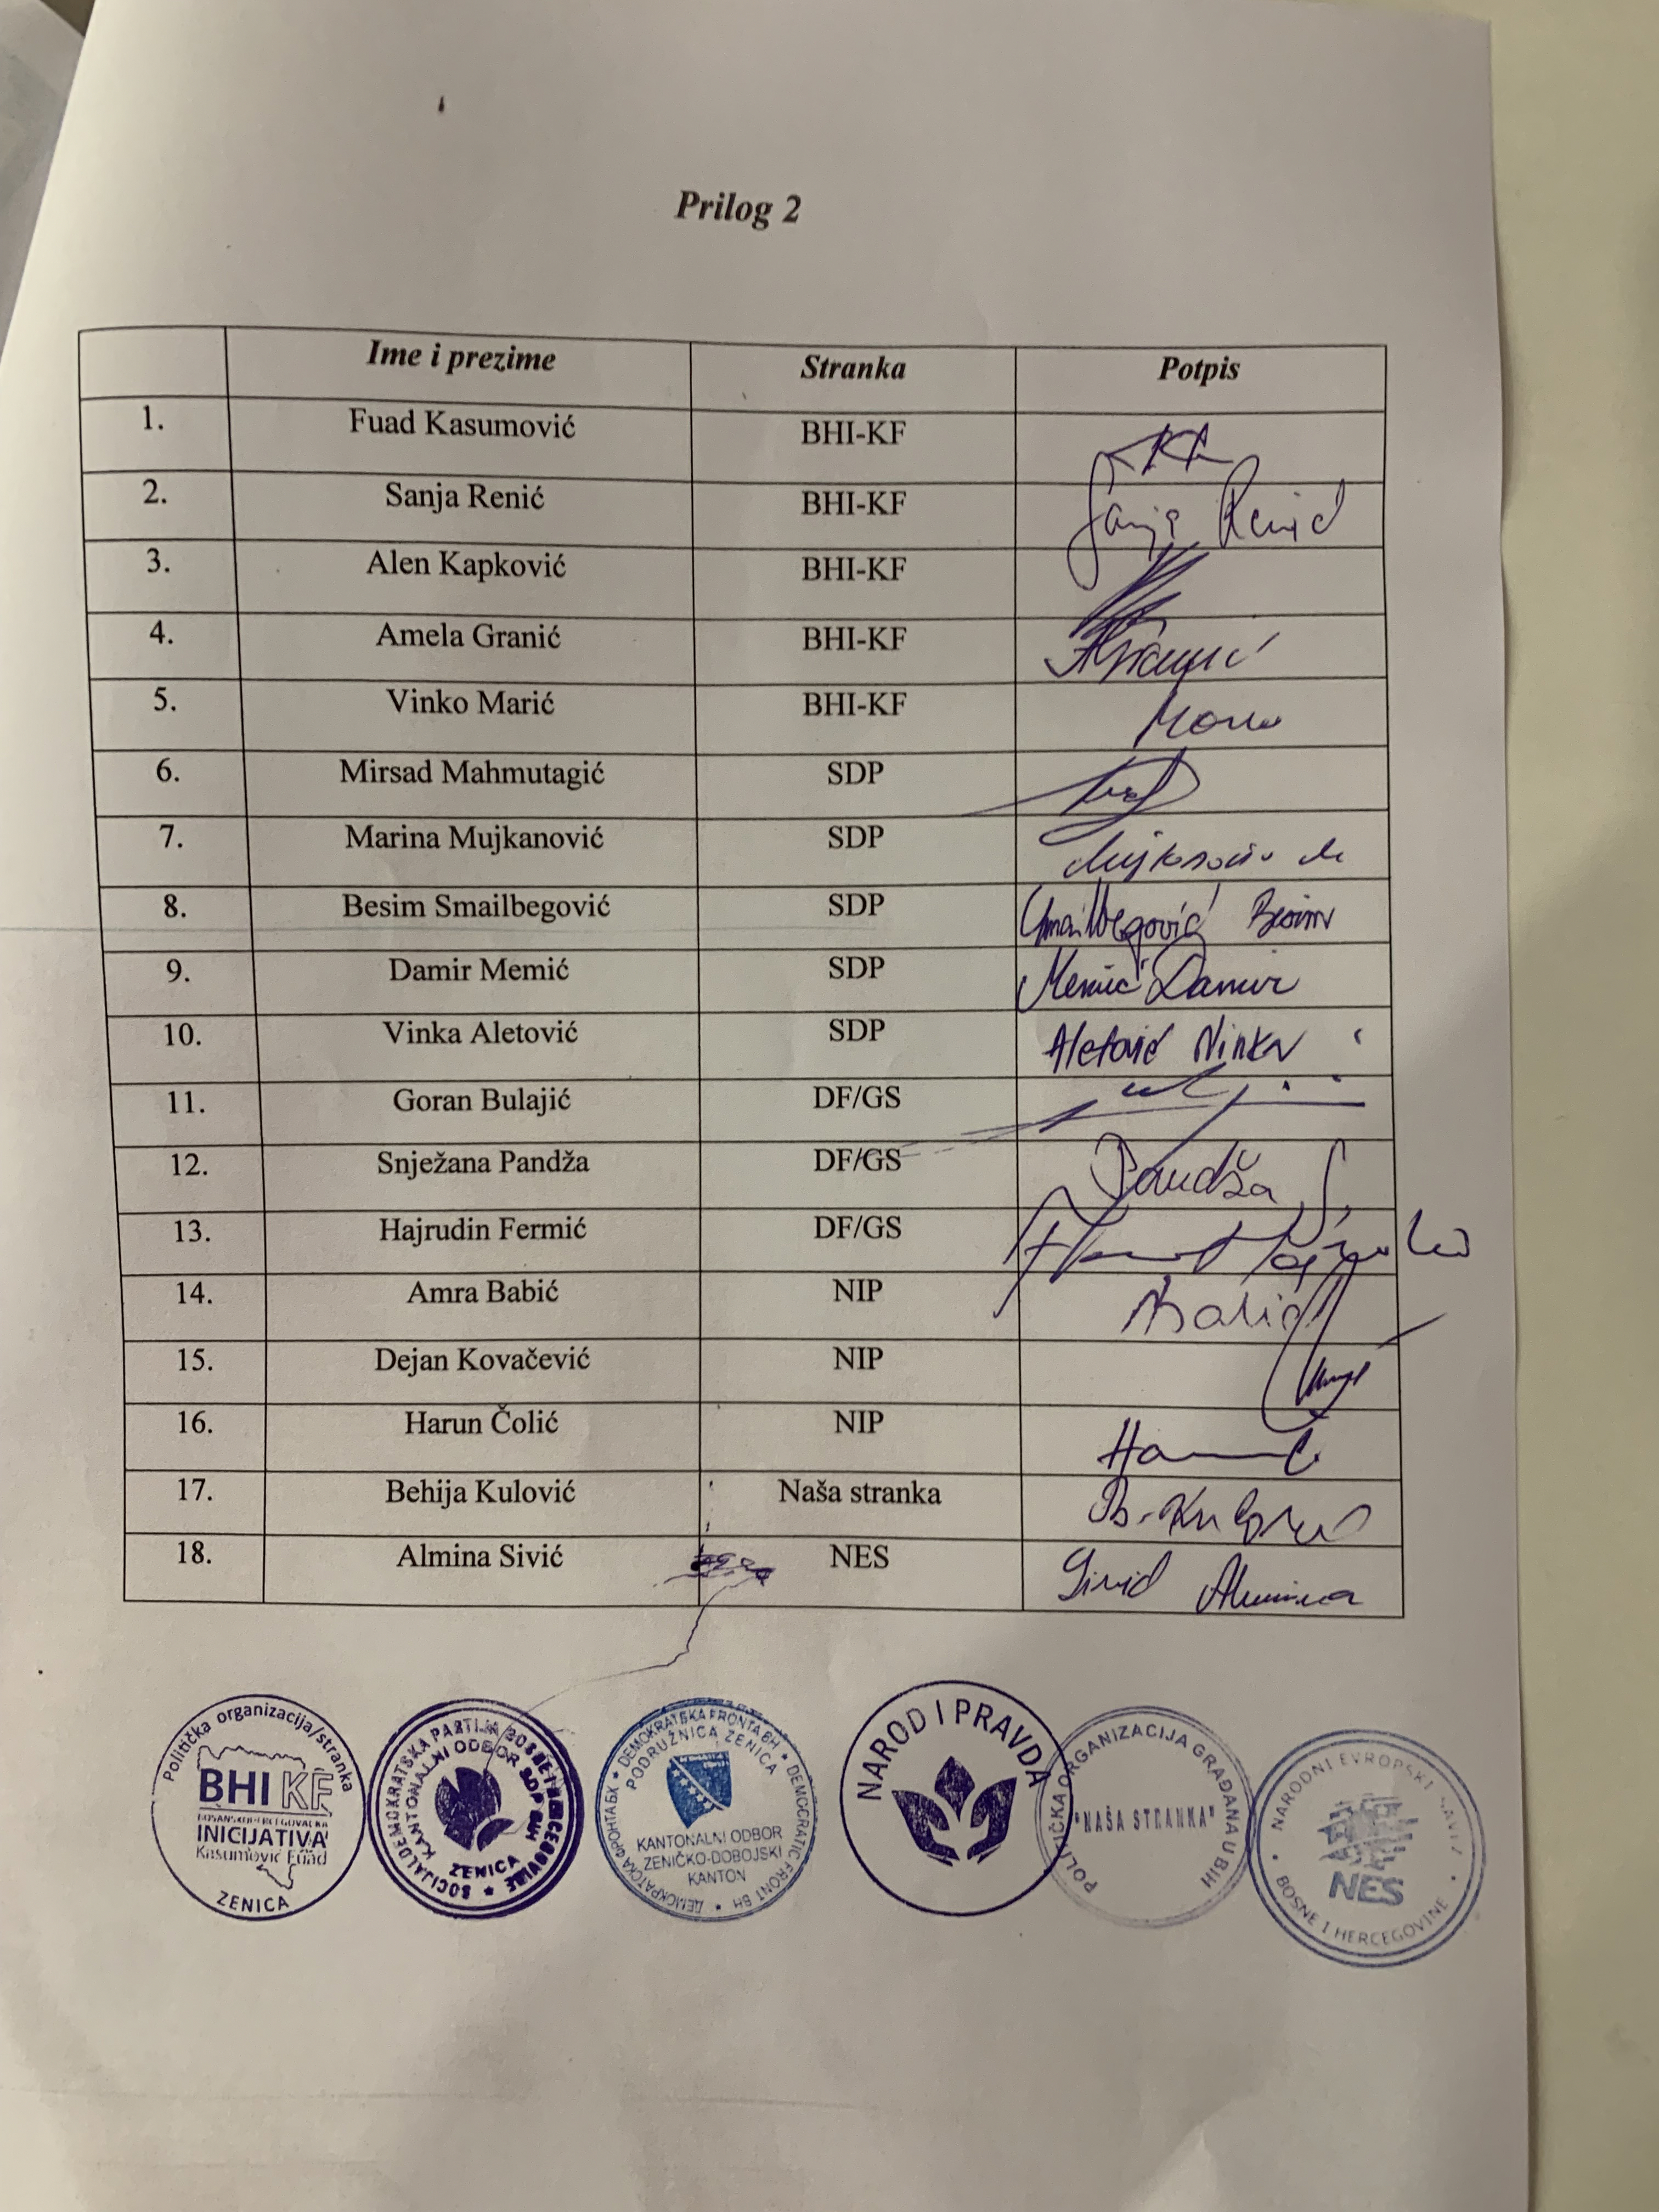 Prilog 2
Ime i prezime Stranka Potpis
1. Fuad Kasumović BHI-KF
2. Sanja Renić BHI-KF Sanja Renić
3. Alen Kapković BHI-KF
4. Amela Granić BHI-KF AGranić
5. Vinko Marić BHI-KF
6. Mirsad Mahmutagić SDP
7. Marina Mujkanović SDP
8. Besim Smailbegović SDP Smailbegović Besim
9. Damir Memić SDP Memić Damir
10. Vinka Aletović SDP Aletović Vinka
11. Goran Bulajić DF/GS
12. Snježana Pandža DF/GS Pandža S.
13. Hajrudin Fermić DF/GS
14. Amra Babić NIP
15. Dejan Kovačević NIP
16. Harun Čolić NIP
17. Behija Kulović Naša stranka B. Kulović
18. Almina Sivić NES Sivić Almina
Politička organizacija/stranka
BHI KF
BOSANSKOHERCEGOVAČKA
INICIJATIVA
Kasumović Fuad
ZENICA
SOCIJALDEMOKRATSKA PARTIJA BOSNE I HERCEGOVINE
KANTONALNI ODBOR SDP BIH
ZENICA
DEMOKRATSKA FRONTA BH • DEMOCRATIC FRONT BH • ДЕМОКРАТСКА ФРОНТА БХ
PODRUŽNICA ZENICA
KANTONALNI ODBOR
ZENIČKO-DOBOJSKI
KANTON
NAROD I PRAVDA
POLITIČKA ORGANIZACIJA GRAĐANA U BIH
"NAŠA STRANKA"
NARODNI EVROPSKI SAVEZ
NES
BOSNE I HERCEGOVINE